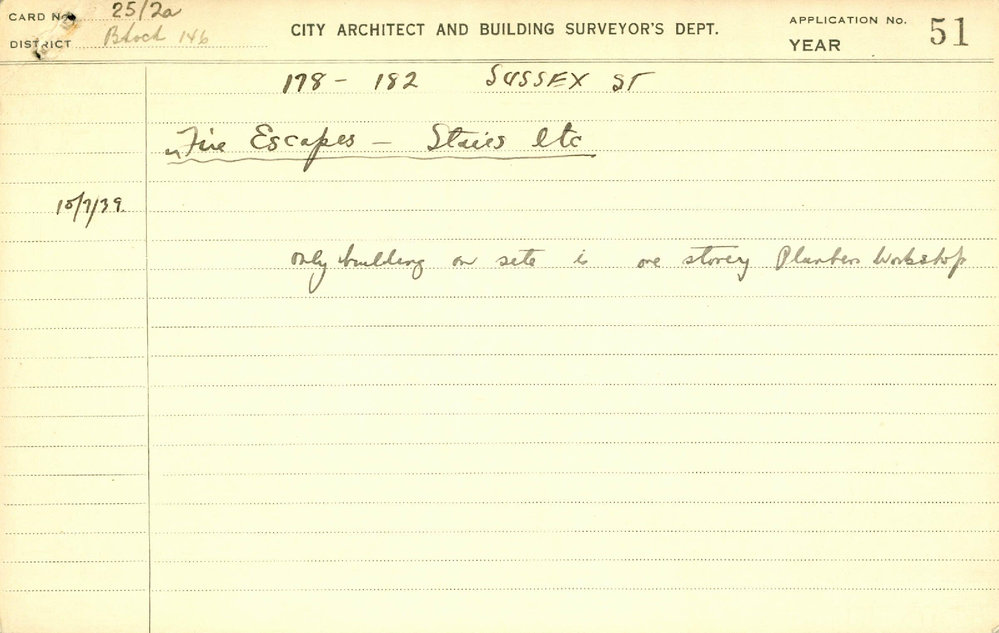 CARD No. 25/2a
DISTRICT Block 146
CITY ARCHITECT AND BUILDING SURVEYOR'S DEPT.
APPLICATION No. 51
YEAR
178 - 182 SUSSEX ST
Fire Escapes - Stairs etc
10/7/39
only building on site is one storey Plumbers Workshop